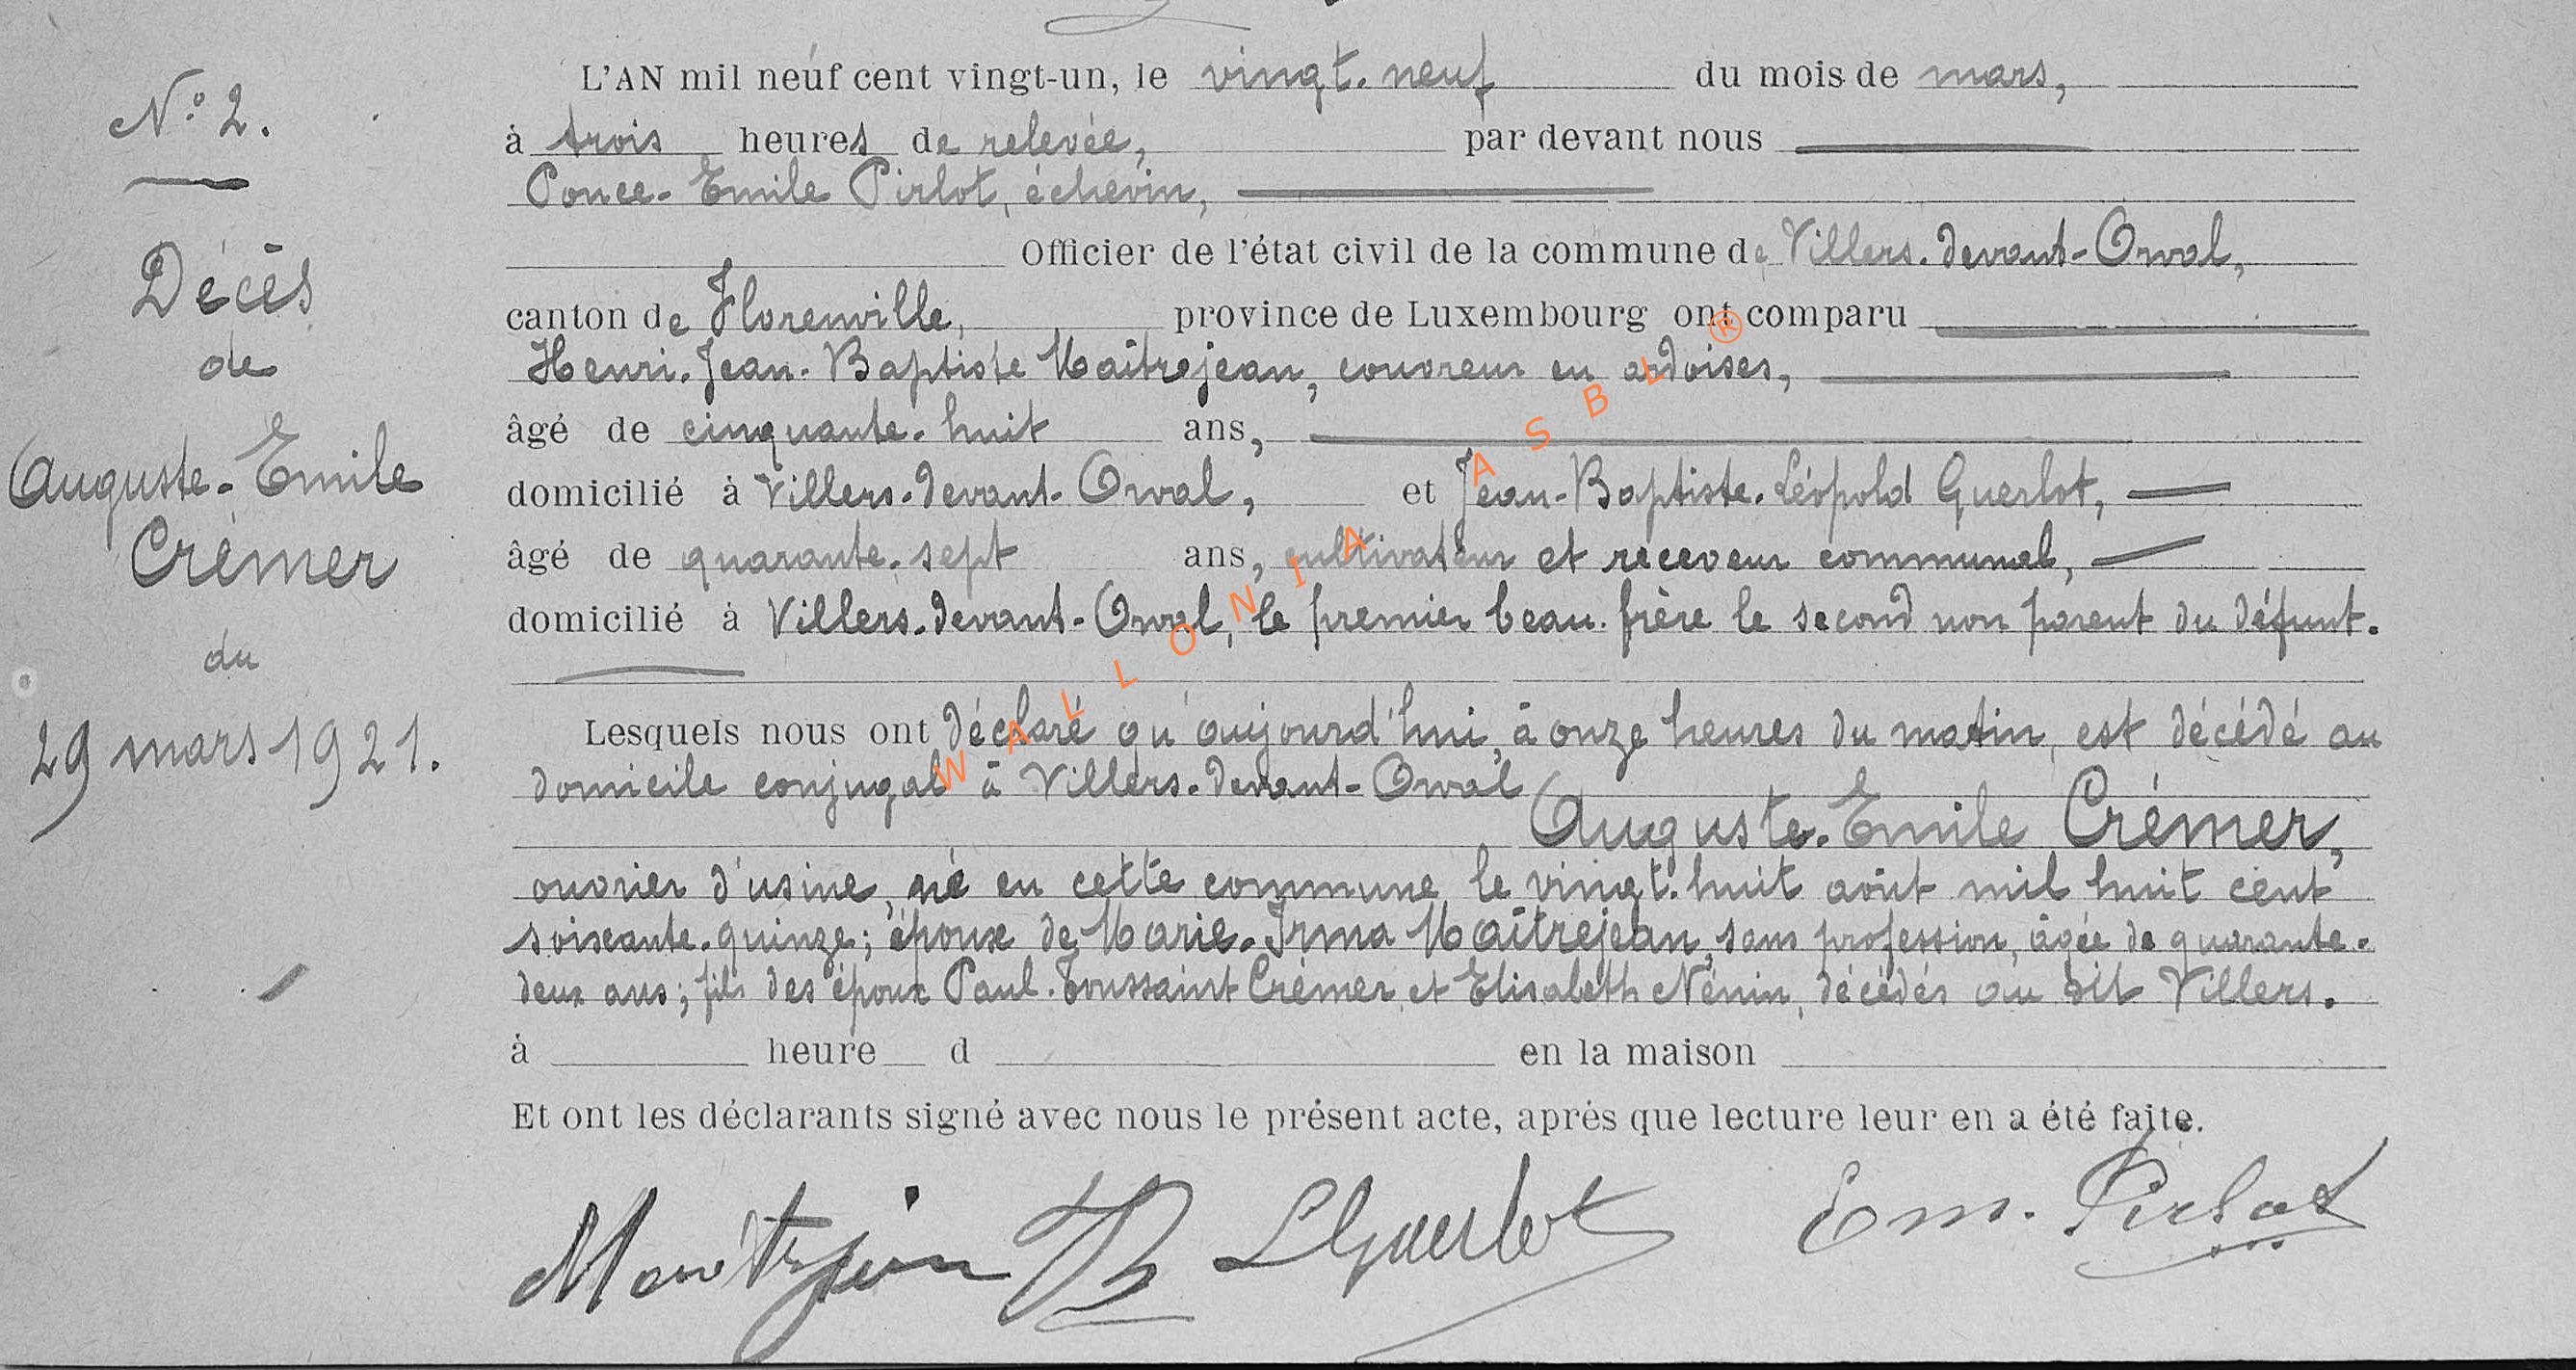 N.° 2.
Décès
de
Auguste-Emile
Crémer
du
29 mars 1921.
L'AN mil neuf cent vingt-un, le vingt-neuf du mois de mars,
à trois heures de relevée, par devant nous
Ponce-Emile Pirlot, échevin,
Officier de l'état civil de la commune de Villers-devant-Orval,
canton de Florenville, province de Luxembourg ont comparu
Henri-Jean-Baptiste Maîtrejean, couvreur en ardoises,
âgé de cinquante-huit ans,
domicilié à Villers-devant-Orval, et Jean-Baptiste-Léopold Guerlot,
âgé de quarante-sept ans, cultivateur et receveur communal,
domicilié à Villers-devant-Orval, le premier beau-frère le second non parent du défunt.
Lesquels nous ont déclaré qu'aujourd'hui, à onze heures du matin, est décédé au
domicile conjugal à Villers-devant-Orval
Auguste-Emile Crémer,
ouvrier d'usine, né en cette commune le vingt-huit août mil huit cent
soixante-quinze; époux de Marie-Irma Maîtrejean, sans profession, âgée de quarante-
deux ans; fils des époux Paul-Toussaint Crémer et Elisabeth Nénin, décédés au dit Villers.
à heure d en la maison
Et ont les déclarants signé avec nous le présent acte, après que lecture leur en a été faite.
Maitrejean JB LGuerlot Em. Pirlot
WALLONIA ASBL ®